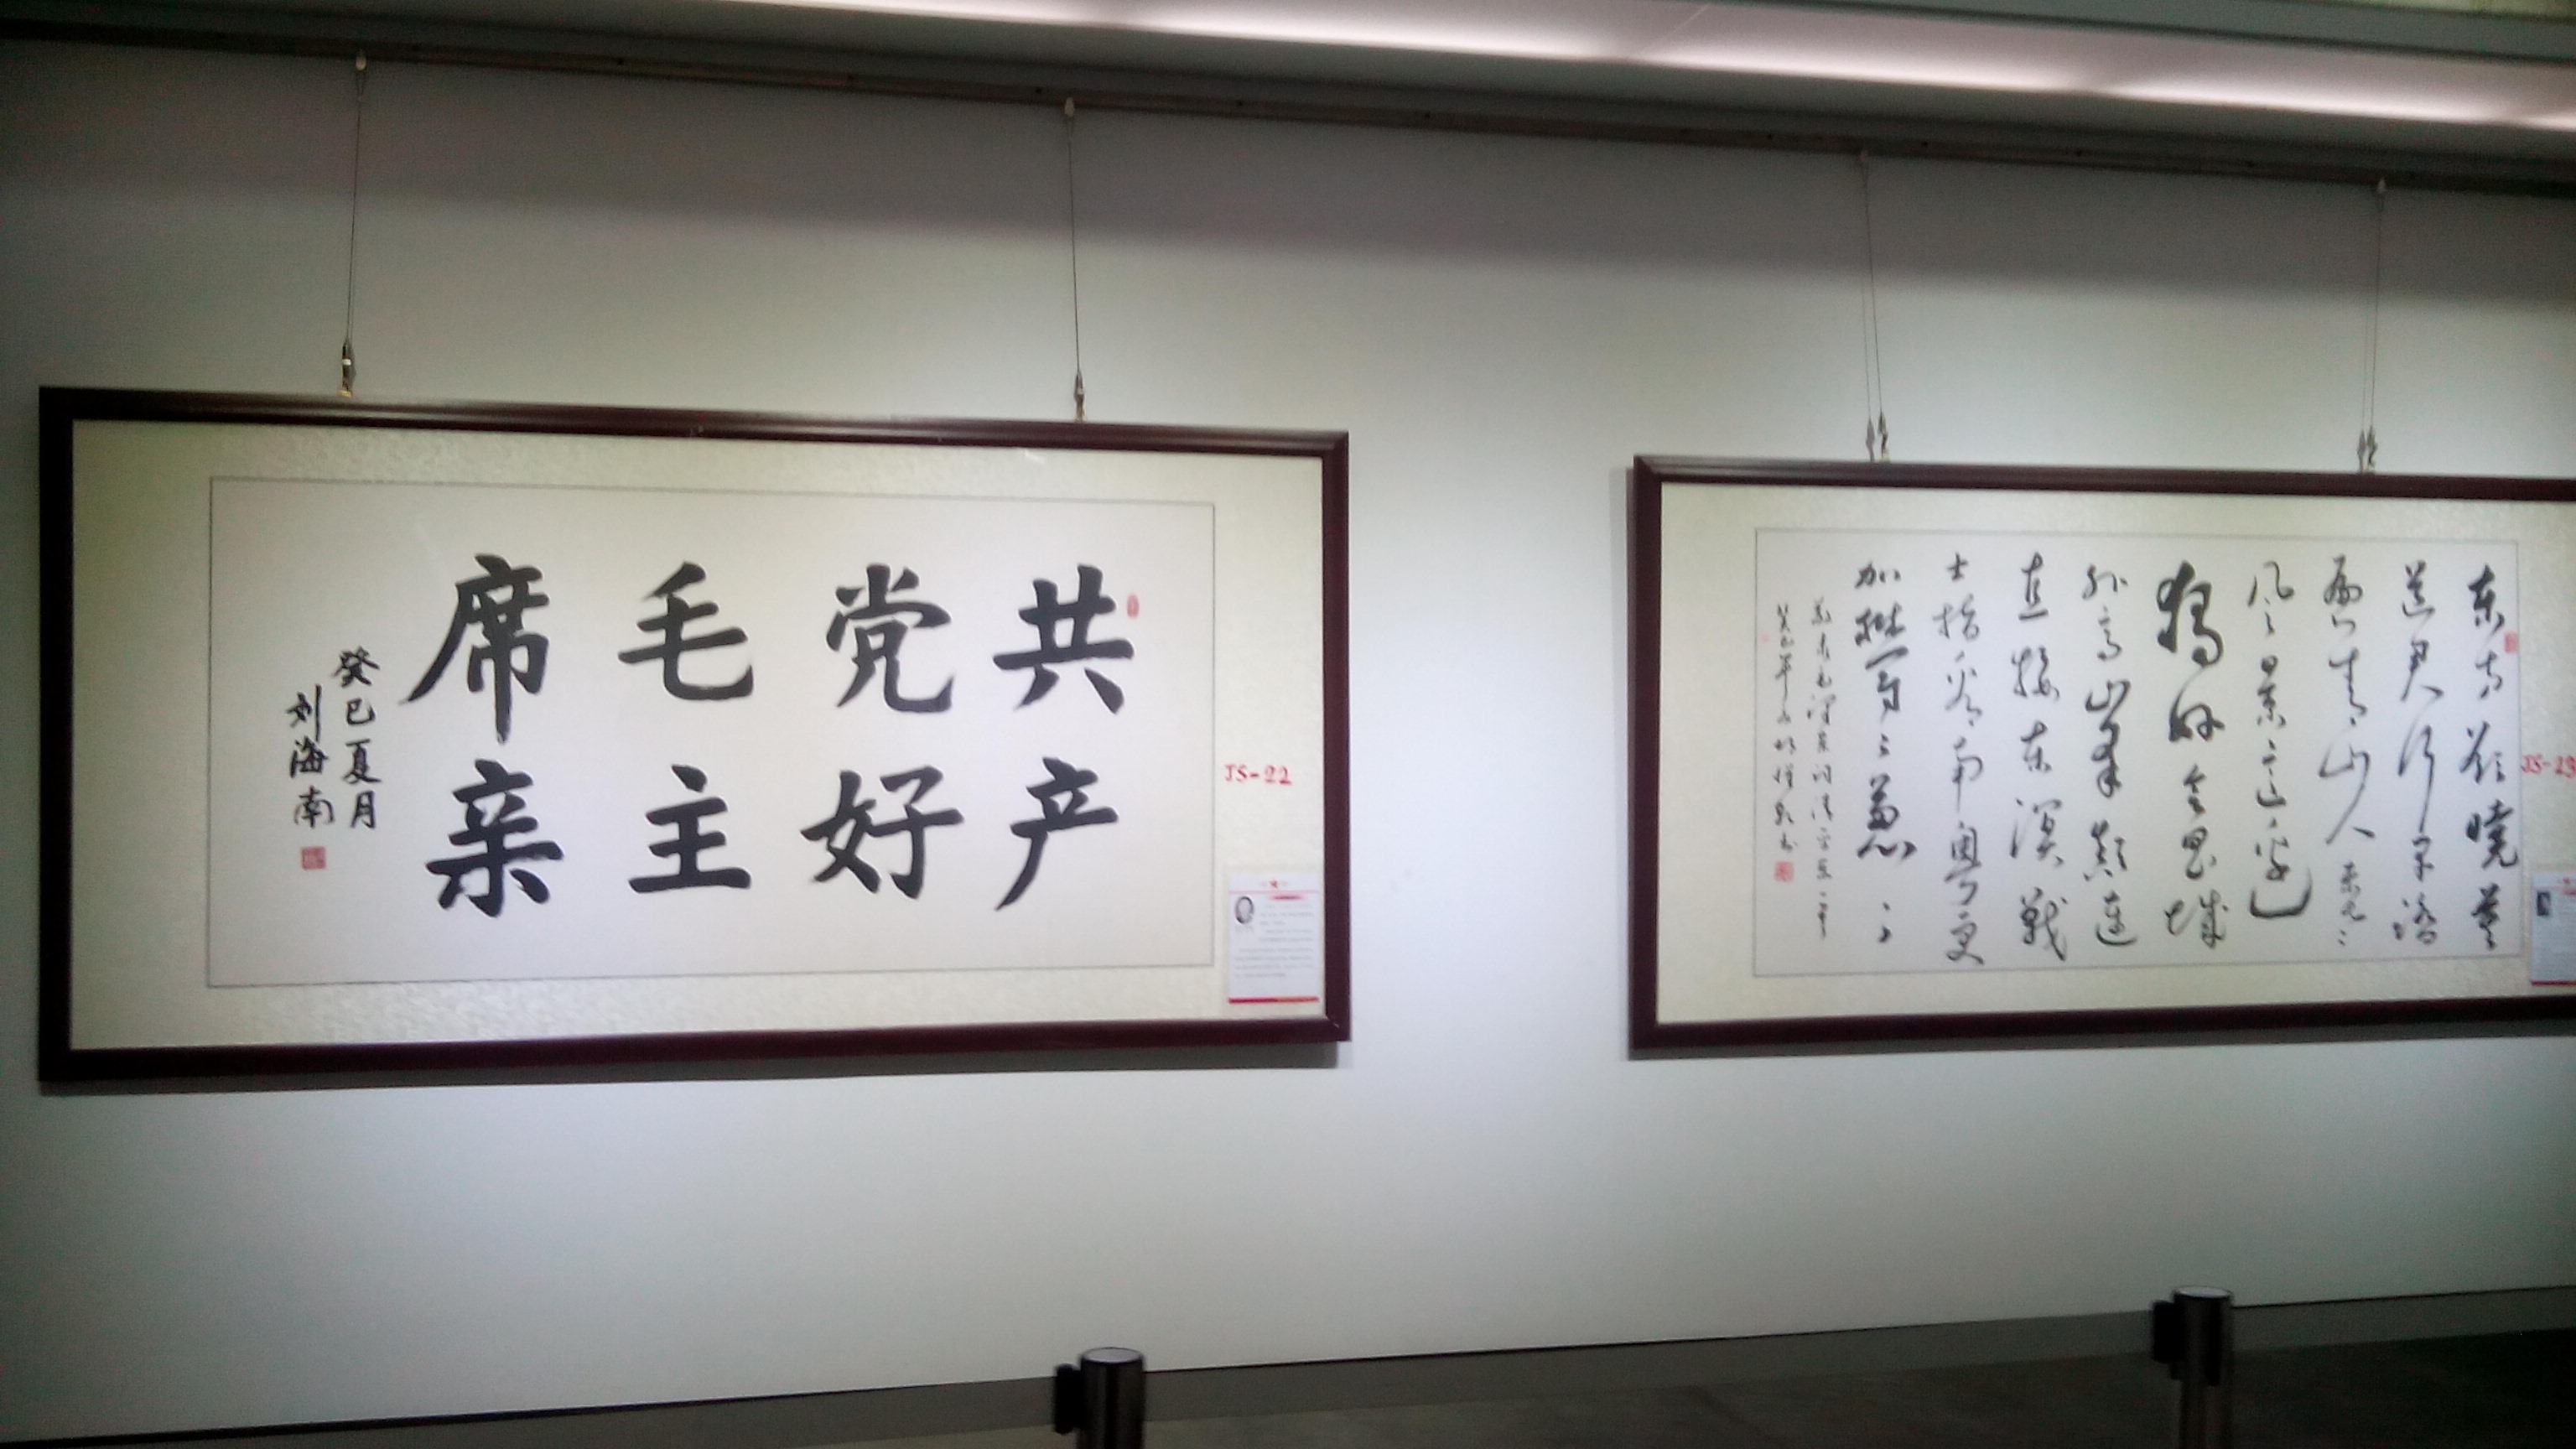 共产
党好
毛主
席亲
癸巳夏月
刘海南
JS-22
东方欲晓莫
道君行早踏
遍青山人未老
风景这边
独好会昌城
外高峯颠连
直接东溟战
士指看南粤更
JS-23